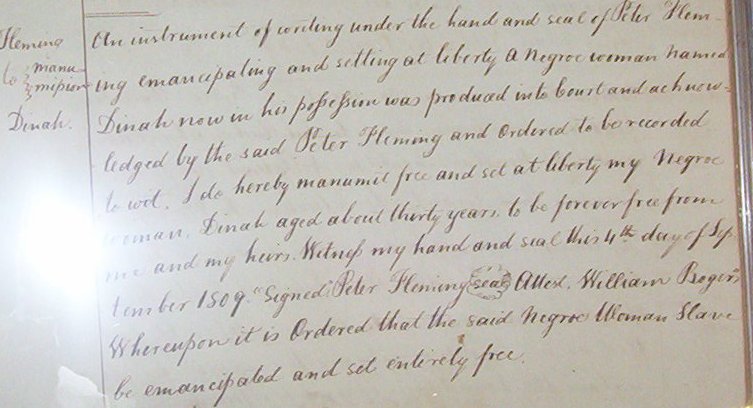 Fleming
to manu
mission
Dinah.
An instrument of writing under the hand and seal of Peter Flem-
ing emancipating and setting at liberty a Negroe woman named
Dinah now in his possession was produced into Court and acknow-
ledged by the said Peter Fleming and Ordered to be recorded
to wit. I do hereby manumit free and set at liberty my Negroe
woman, Dinah aged about thirty years, to be forever free from
me and my heirs. Witness my hand and seal this 4th day of Sep
tember 1809. "Signed" Peter Fleming (seal) Attest. William Rogers
Whereupon it is Ordered that the said Negroe Woman Slave
be emancipated and set entirely free.